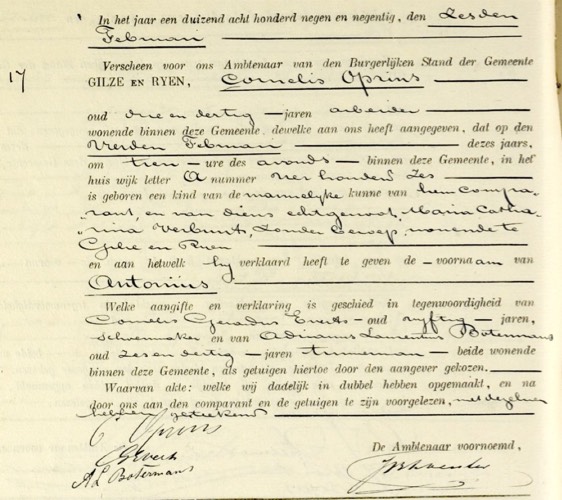 In het jaar een duizend acht honderd negen en negentig, den Zesden
Februari
Verscheen voor ons Ambtenaar van den Burgerlijken Stand der Gemeente
17
GILZE EN RYEN, Cornelis Oprins
oud drie en dertig jaren arbeider
wonende binnen deze Gemeente, dewelke aan ons heeft aangegeven, dat op den
Vierden Februari dezes jaars,
om tien ure des avonds binnen deze Gemeente, in het
huis wijk letter A nummer vier honderd zes
is geboren een kind van de mannelijke kunne van hem compa-
rant, en van diens echtgenoot, Maria Catha-
rina Verbunt, zonder beroep, wonende te
Gilze en Ryen
en aan hetwelk hij verklaard heeft te geven de voornaam van
Antonius
Welke aangifte en verklaring is geschied in tegenwoordigheid van
Cornelis Gerardus Everts oud vyftig jaren,
schoenmaker en van Adrianus Laurentius Botermans
oud zes en dertig jaren timmerman beide wonende
binnen deze Gemeente, als getuigen hiertoe door den aangever gekozen.
Waarvan akte: welke wij dadelijk in dubbel hebben opgemaakt, en na
door ons aan den comparant en de getuigen te zijn voorgelezen, met dezelven
hebben geteekend
C Oprins
De Ambtenaar voornoemd,
Everts
A L Botermans